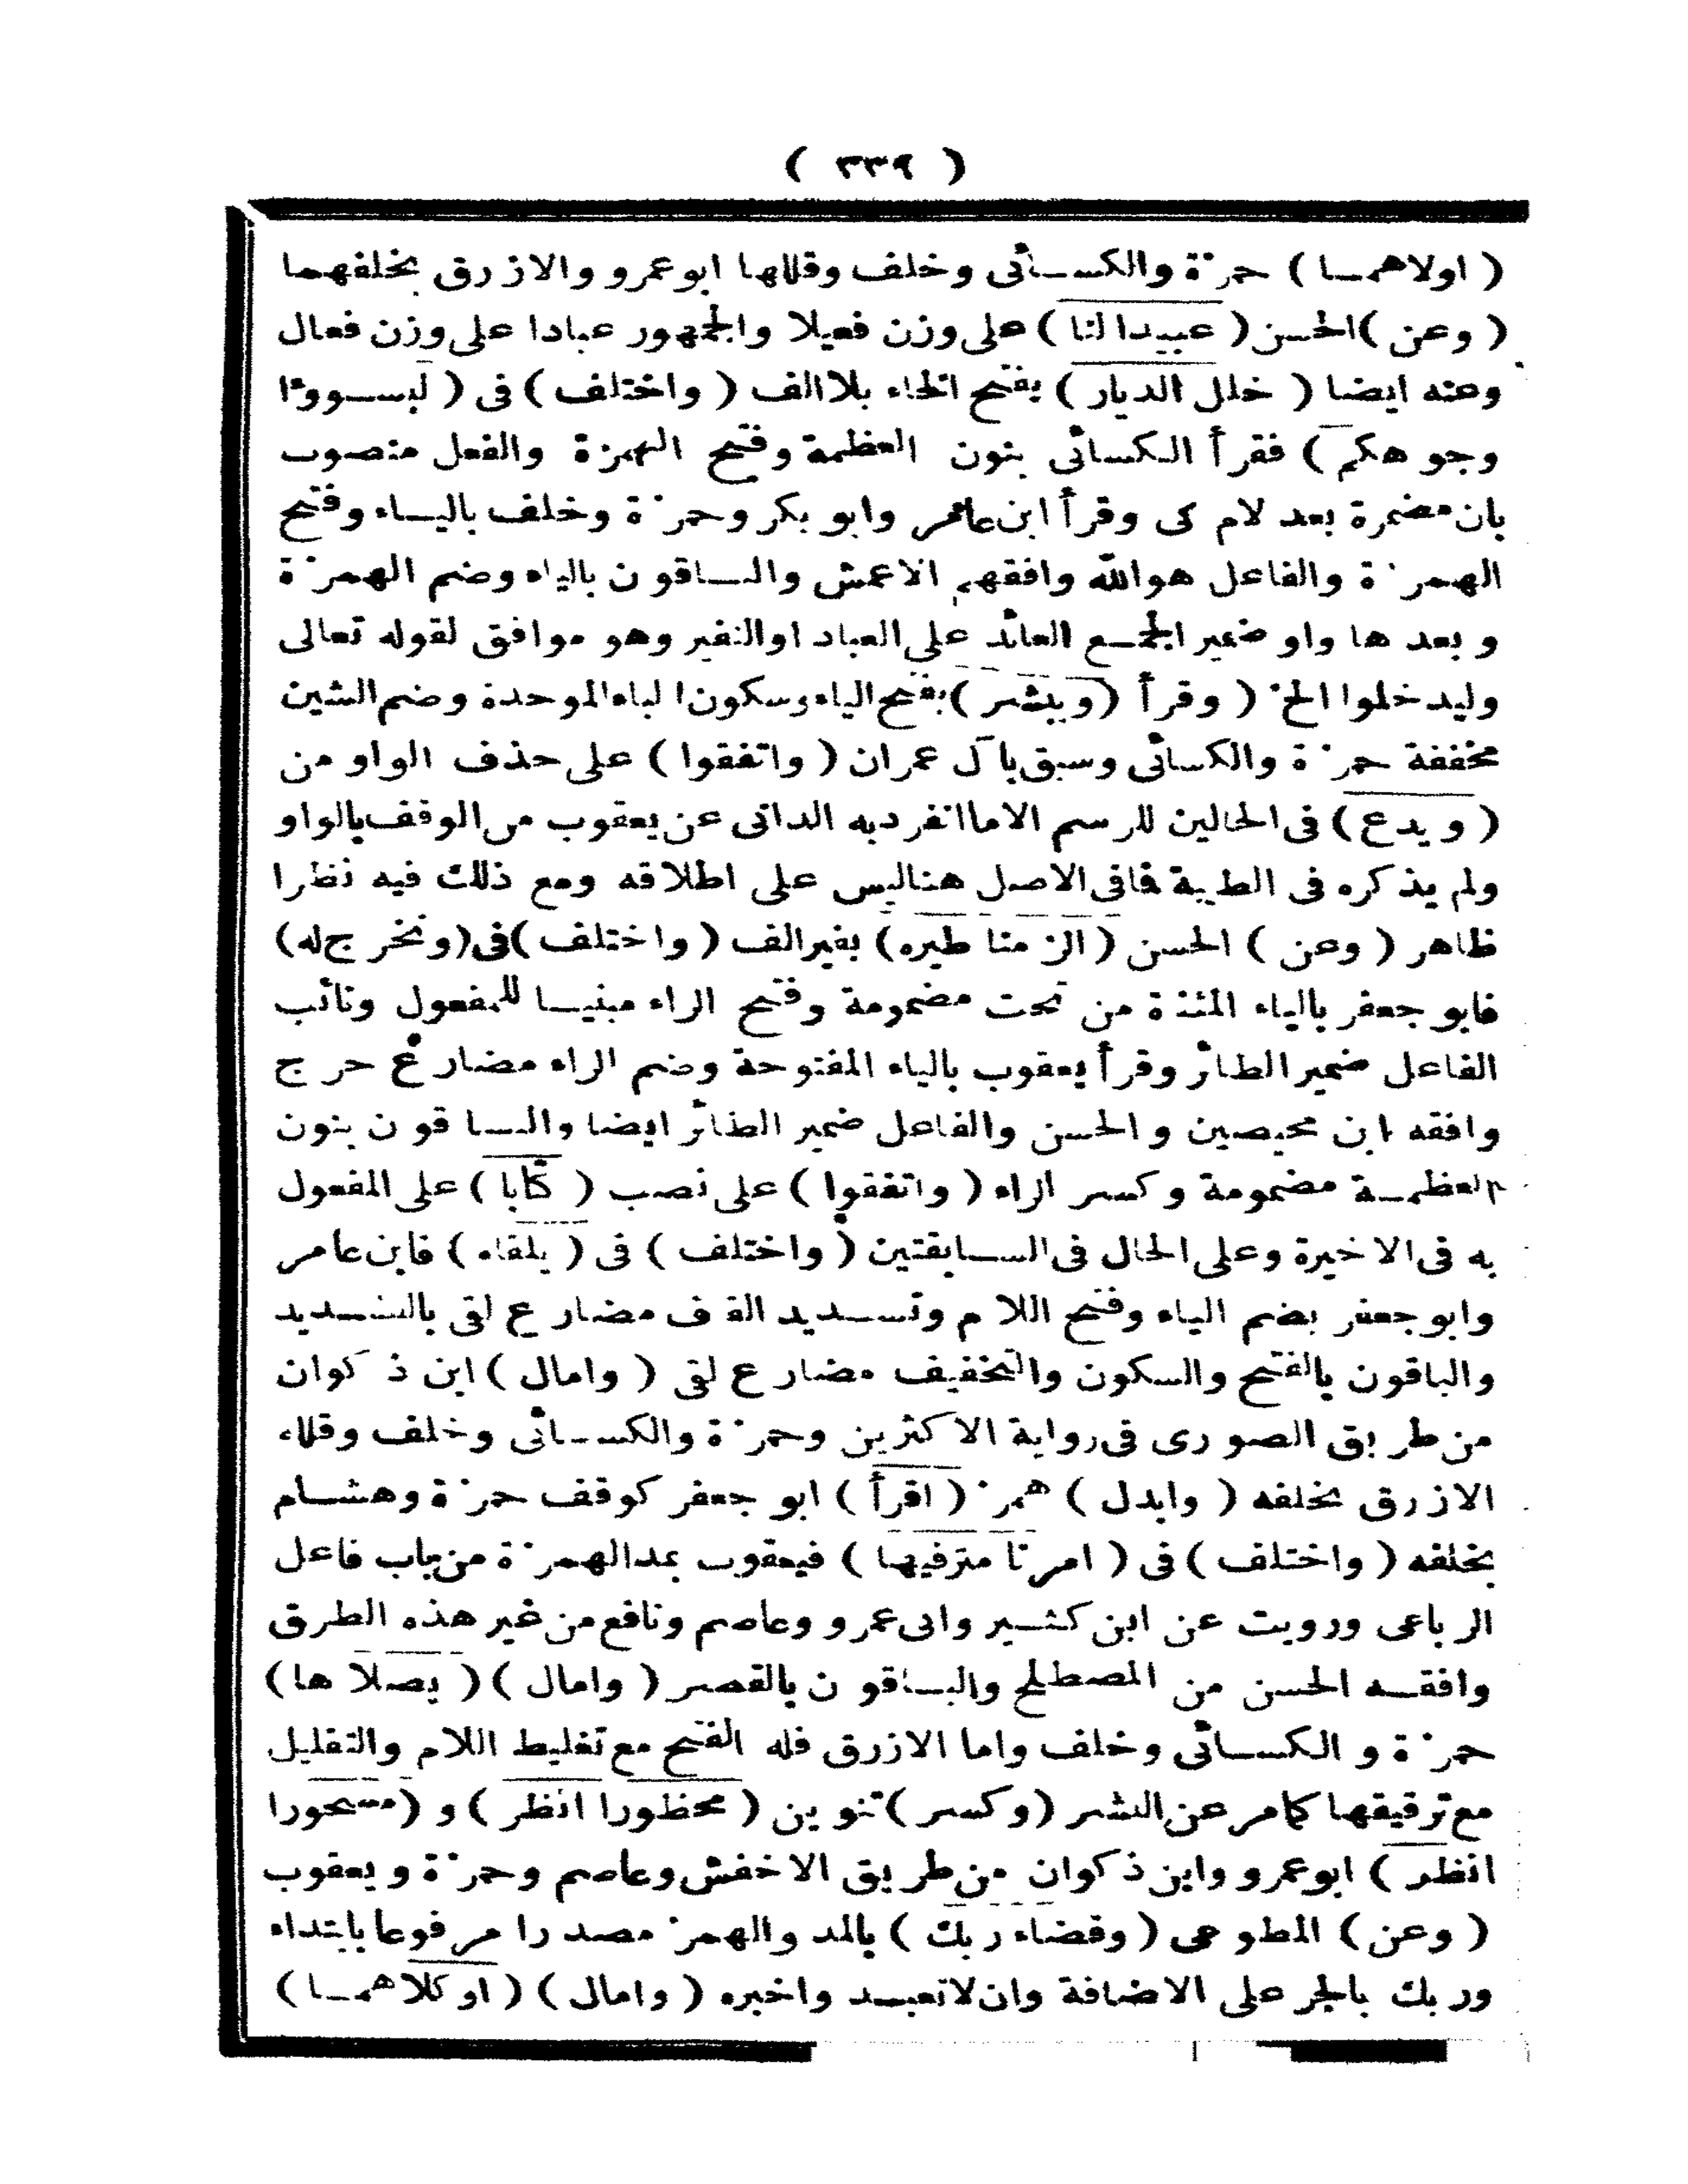 ( ٣٣٩ )
( اولاهما ) حمزة والكسائى وخلف وقللها ابوعمرو والازرق بخلفهما
( وعن ) الحسن ( عبيدا لنا ) على وزن فعيلا والجمهور عبادا على وزن فعال
وعنه ايضا ( خلل الديار ) بفتح الخاء بلاالف ( واختلف ) فى ( ليسووًا
وجوهكم ) فقرأ الكسائى بنون العظمة وفتح الهمزة والفعل منصوب
بان مضمرة بعد لام كى وقرأ ابن عامر وابو بكر وحمزة وخلف بالياء وفتح
الهمزة والفاعل هوالله وافقهم الاعمش والباقون بالياء وضم الهمزة
وبعدها واو ضمير الجمع العائد على العباد اوالنفير وهو موافق لقوله تعالى
وليدخلوا الخ ( وقرأ ( ويبشر ) بفتح الياء وسكون الباء الموحدة وضم الشين
مخففة حمزة والكسائى وسبق بآل عمران ( واتفقوا ) على حذف الواو من
( ويدع ) فى الحالين للرسم الاماانفرد به الدانى عن يعقوب من الوقف بالواو
ولم يذكره فى الطيبة فافى الاصل هناليس على اطلاقه ومع ذلك فيه نظرا
ظاهر ( وعن ) الحسن ( الزمنا طيره ) بغيرالف ( واختلف ) فى ( ونخرج له )
فابو جعفر بالياء المثناة من تحت مضمومة وفتح الراء مبنيا للمفعول ونائب
الفاعل ضمير الطائر وقرأ يعقوب بالياء المفتوحة وضم الراء مضارع خرج
وافقه ابن محيصين والحسن والفاعل ضمير الطائر ايضا والباقون بنون
العظمة مضمومة وكسر الراء ( واتفقوا ) على نصب ( كتابا ) على المفعول
به فى الاخيرة وعلى الحال فى السابقتين ( واختلف ) فى ( يلقاه ) فابن عامر
وابو جعفر بضم الياء وفتح اللام وتشديد القاف مضارع لقى بالتشديد
والباقون بالفتح والسكون والتخفيف مضارع لقى ( وامال ) ابن ذكوان
من طريق الصورى فى رواية الاكثرين وحمزة والكسائى وخلف وقلله
الازرق بخلفه ( وابدل ) همز ( اقرأ ) ابو جعفر كوقف حمزة وهشام
بخلفه ( واختلف ) فى ( امرنا مترفيها ) فيعقوب بمد الهمزة من باب فاعل
الرباعى ورويت عن ابن كثير وابى عمرو وعاصم ونافع من غير هذه الطرق
وافقه الحسن من المصطلح والباقون بالقصر ( وامال ) ( يصلاها )
حمزة والكسائى وخلف واما الازرق فله الفتح مع تغليط اللام والتقليل
مع ترقيقها كمامر عن النشر ( وكسر ) تنوين ( محظورا انظر ) و ( مسحورا
انظر ) ابوعمرو وابن ذكوان من طريق الاخفش وعاصم وحمزة ويعقوب
( وعن ) المطوعى ( وقضاء ربك ) بالمد والهمز مصدرا مرفوعا بابتداء
وربك بالجر على الاضافة وان لاتعبد واخبره ( وامال ) ( او كلاهما )